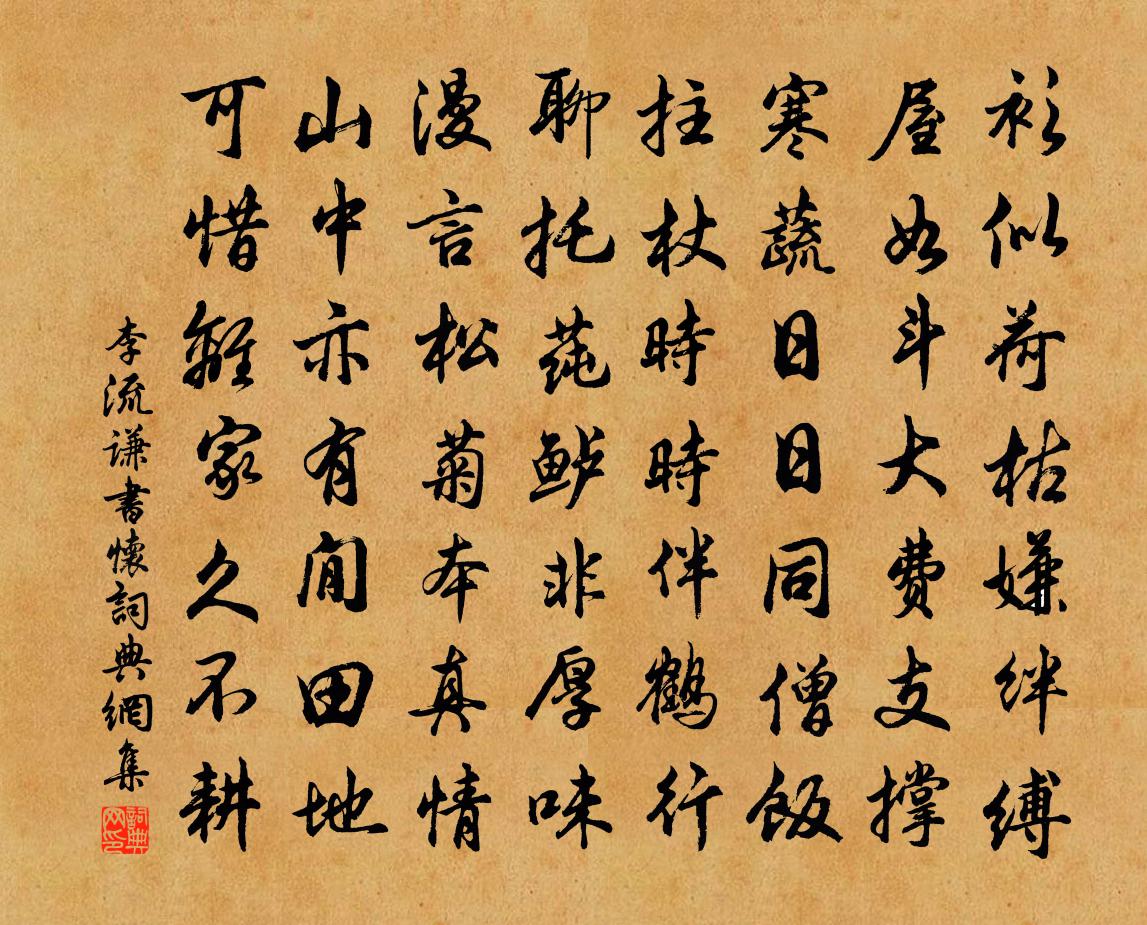 衫似荷枯嫌絆縛
屋如斗大費支撑
寒蔬日日同僧飯
拄杖時時伴鶴行
聊托莼鲈非厚味
漫言松菊本真情
山中亦有閒田地
可惜離家久不耕
李流謙書懷詞典網集
詞典网印